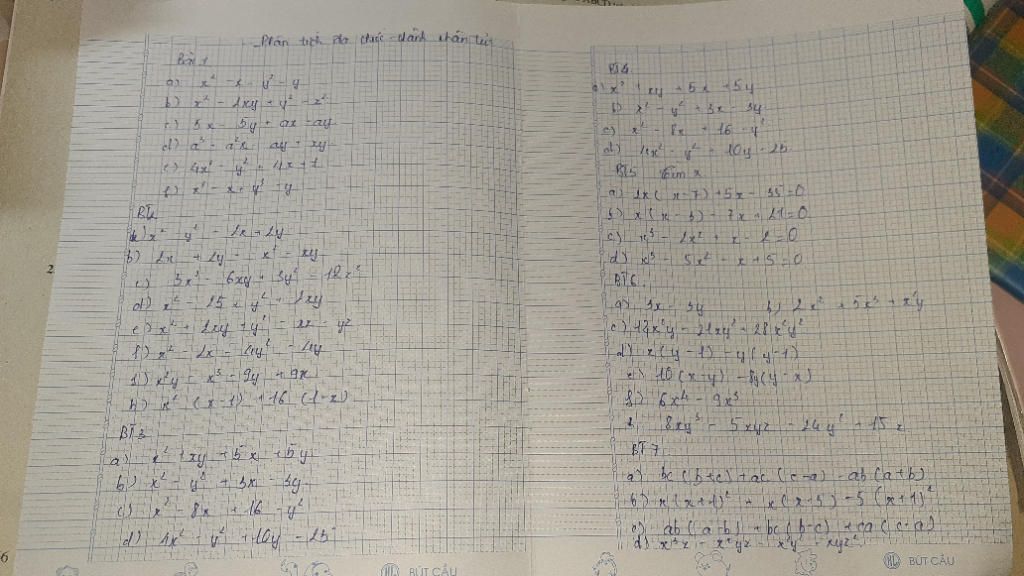 Phân tích đa thức thành nhân tử
Bài 1
a) x² - x - y² - y
b) x² - 2xy + y² - z²
c) 5x - 5y + ax - ay
d) a³ - a²x - ay + xy
e) 4x² - y² + 4x + 1
f) x² - x + y² - y
BT2
a) x² - y² - 2x + 2y
b) 2x + 2y - x² - xy
c) 3x² - 6xy + 3y² - 12z²
d) x² - 25 + y² + 2xy
e) x² + 2xy + y² - xz - yz
f) x² - 2x - 4y² - 4y
g) x²y - x³ - 9y + 9x
h) x² (x-1) + 16 (1-x)
BT3
a) x² + xy + 5x + 5y
b) x² - y² + 3x - 3y
c) x² - 8x + 16 - y²
d) 4x² - y² + 10y - 25
BT4
a) x² + xy + 5x + 5y
b) x² - y² + 3x - 3y
c) x² - 8x + 16 - y²
d) 4x² - y² + 10y - 25
BT5 tìm x
a) 2x( x-7) + 5x - 35 = 0
b) x(x - 3) - 7x + 21 = 0
c) x³ - 2x² + x - 2 = 0
d) x³ - 5x² - x + 5 = 0
BT6
a) 3x - 3y b) 2x² + 5x³ + x²y
c) 14x²y - 21xy² + 28x²y²
d) x(y-1) - y(y-1)
e) 10(x-y) - 8y(y-x)
f) 6x⁴ - 9x³
8xy³ - 5xyz - 24y² + 15z
BT 7
a) bc(b+c) + ac(c-a) - ab(a+b)
b) x(x+1)² + x(x-5) - 5(x+1)²
c) ab(a-b) + bc(b-c) + ca(c-a)
d) x³z - x²yz - x²y² - xyz²
2
6
BÚT CẦU
BÚT CẦU